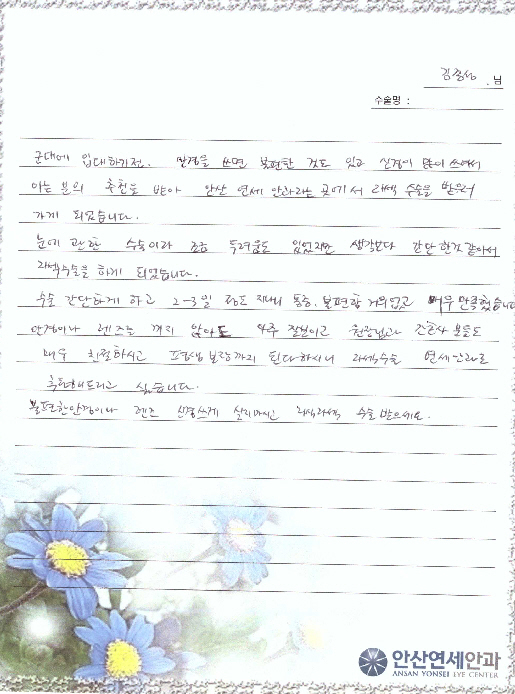 김종성 님
수술명 :
군대에 입대하기전. 안경을 쓰면 불편한 것도 있고 신경이 많이 쓰여서
아는 분의 추천을 받아 안산 연세 안과라는 곳에서 라섹 수술을 받으러
가게 되었습니다.
눈에 관한 수술이라 조금 두려움도 있었지만 생각보다 간단한것 같아서
라섹수술을 하게 되었습니다.
수술 간단하게 하고 2-3일 정도 지나니 통증, 불편함 거의없고 매우 만족했습니다
안경이나 렌즈는 끼지 않아도 아주 잘보이고 원장님과 간호사 분들도
매우 친절하시고 평생 보장까지 된다하시니 라섹수술 연세안과로
추천해드리고 싶습니다.
불편한안경이나 렌즈 신경쓰게 살지마시고 라섹 수술 받으세요.
안산연세안과
ANSAN YONSEI EYE CENTER